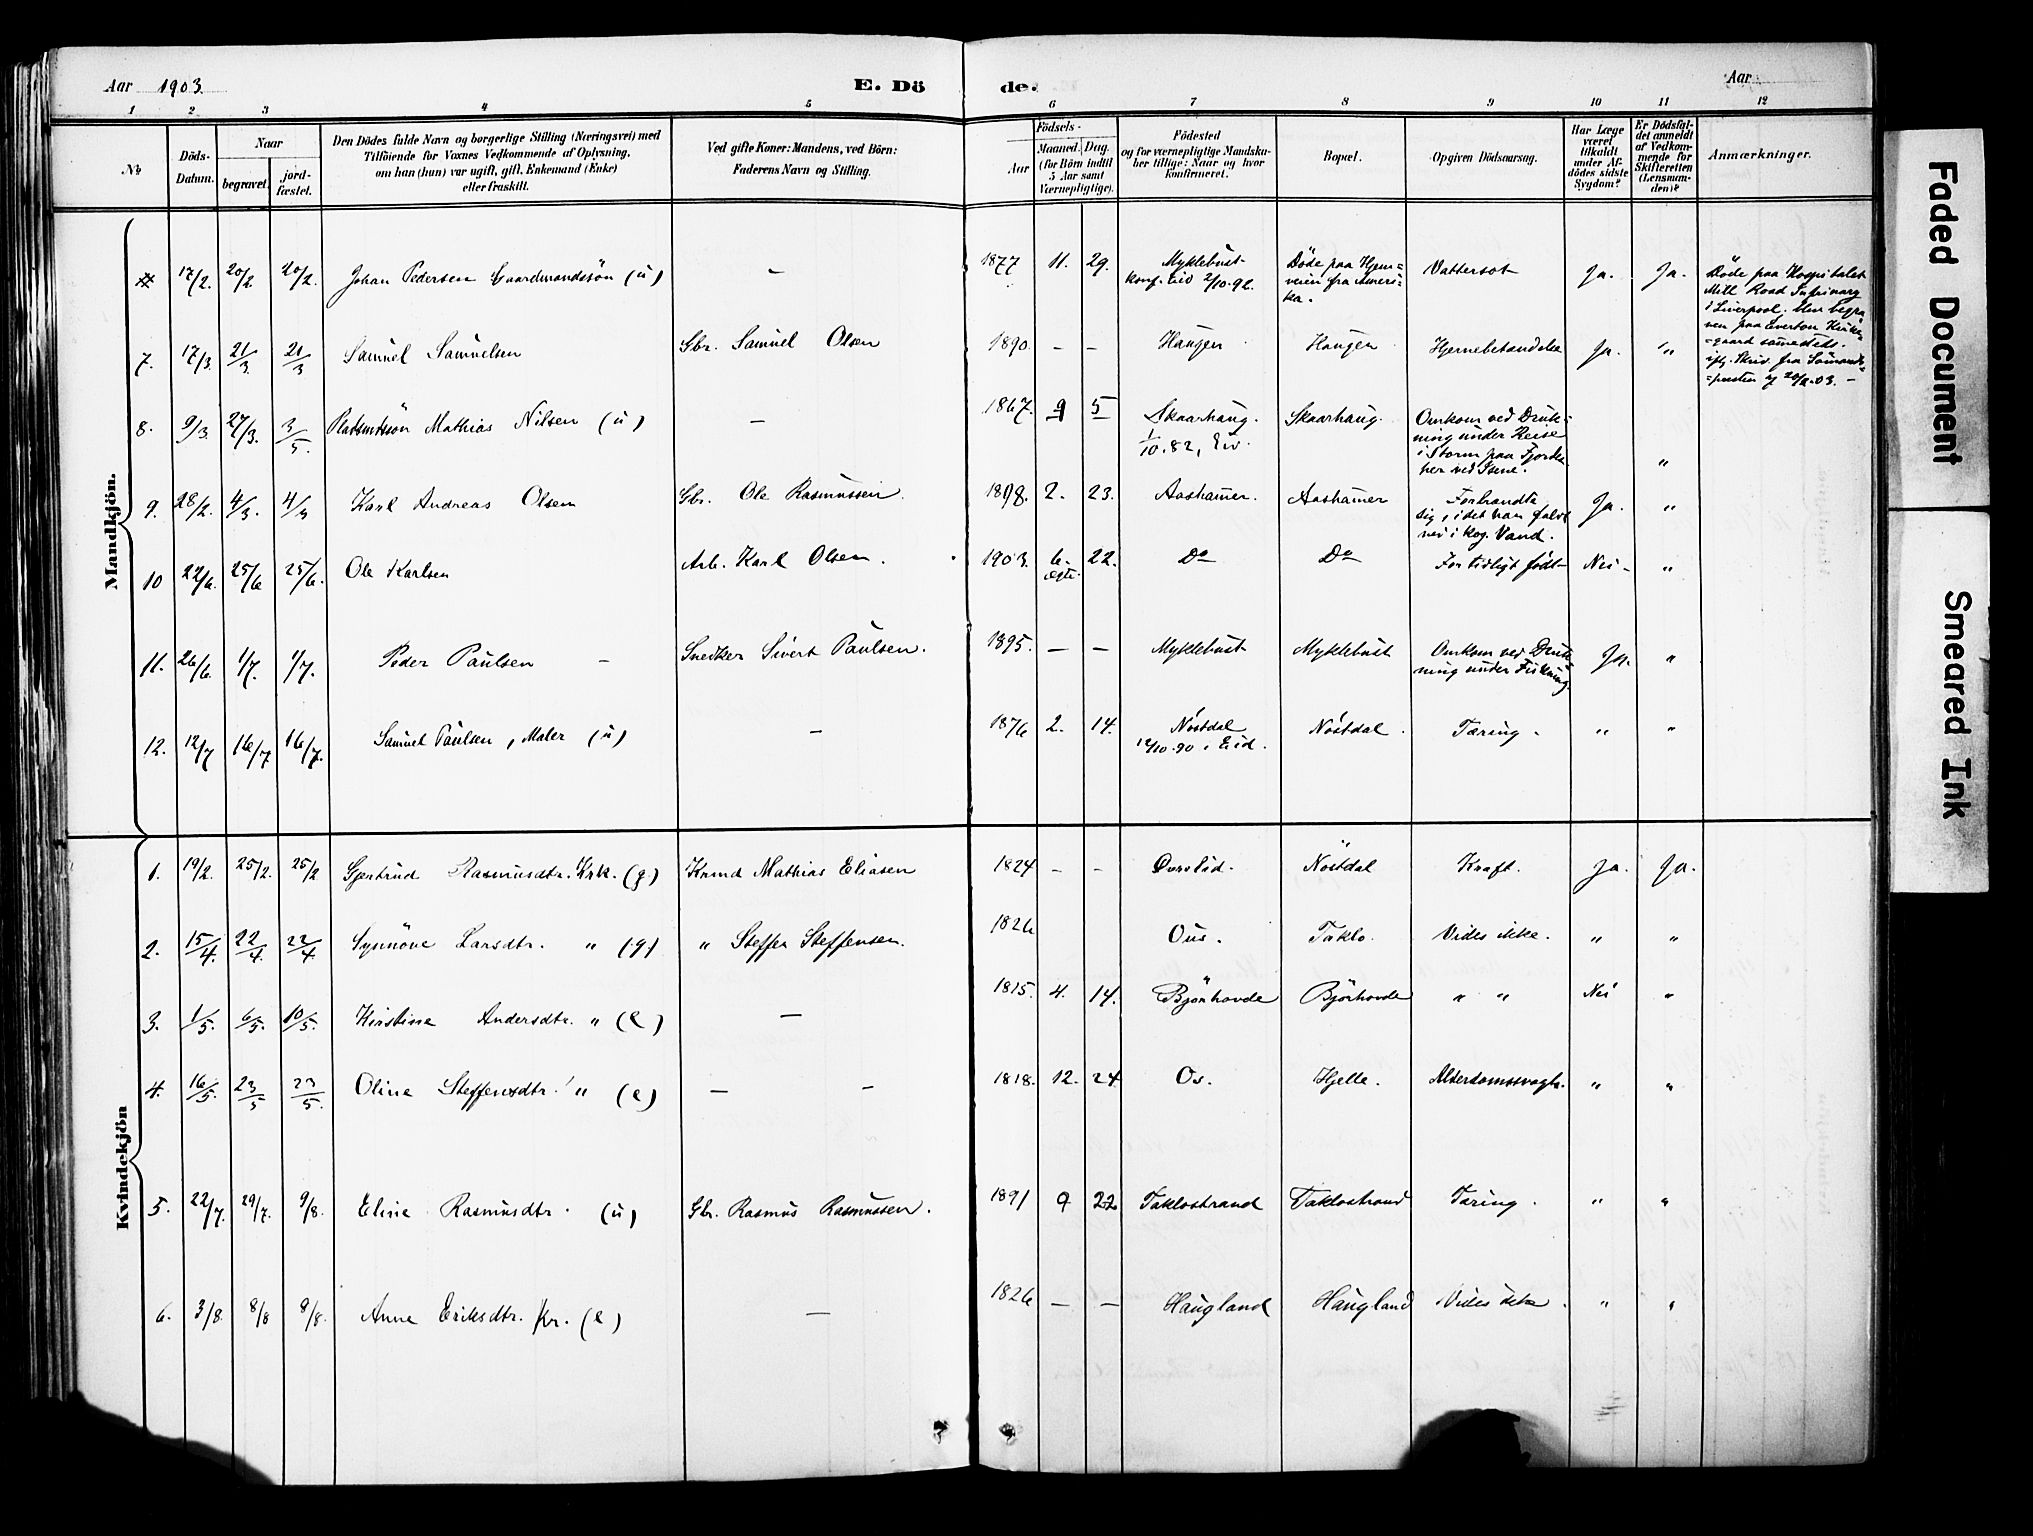 Aar 1903.
E. Dö
de.
Aar
1 2 3 4 5 6 7 8 9 10 11 12
No
Döds-
Datum.
Naar
begravet.
jord-
fæstet.
Den Dödes fulde Navn og borgerlige Stilling (Næringsvei) med
Tilföiende for Voxnes Vedkommende af Oplysning,
om han (hun) var ugift, gift, Enkemand (Enke)
eller fraskilt.
Ved gifte Koner: Mandens, ved Börn:
Faderens Navn og Stilling.
Födsels-
Aar
Maaned. Dag.
(for Börn indtil
5 Aar samt
Værnepligtige).
Födested
og for værnepligtige Mandska-
ber tillige: Naar og hvor
konfirmeret.
Bopæl.
Opgiven Dödsaarsag.
Har Læge
været
tilkaldt
under Af-
dödes sidste
Sygdom?
Er Dödsfal-
det anmeldt
af Vedkom-
mende for
Skifteretten
(Lensman-
den)?
Anmærkninger.
Mandkjön.
17/2. 20/2 20/2. Johan Pedersen Gaardmandssön (u) — 1877 11. 29. Myklebust
konf. Eid 2/10.92. Döde paa Hjem=
veien fra Ameri=
ka. Vattersot Ja. Ja. Döde paa Hospitalet
Mill Road Infirmary
i Liverpool. Blev begra
ven paa Everton Kirke
=gaard sammesteds.
7. 17/3. 21/3 21/3 Samuel Samuelsen Gbr. Samuel Olsen 1890. — — Haugen Haugen Hjernebetændelse Ja. "
8. 9/3. 27/3. 3/5. Pladsmdssön Mathias Nilsen (u) — 1867. 9 5 Skaarhaug.
1/10.82, Eid. Skaarhaug. Omkom ved Druk=
ning under Reise
i Storm paa Fjorden
her ved Isene. "
9. 28/2. 4/3. 4/3 Karl Andreas Olsen Gbr. Ole Rasmussen. 1898. 2. 23. Aashamer. Aashamer Forbrændte
sig, idet han faldt
ned i kog. Vand. Ja. "
10 22/6. 25/6 25/6. Ole Karlsen Arb. Karl Olsen. 1903. 6. 22.
ægte. Do Do For tidligt födt Nei "
11. 26/6. 1/7. 1/7. Peder Paulsen — Snedker Sivert Paulsen. 1895. — — Myklebust Myklebust Omkom ved Druk
ning under Fiskning. Ja. "
12. 12/7 16/7 16/7. Samuel Paulsen, Maler (u) — 1876 2. 14. Nöstdal
12/10.90 i Eid. Nöstdal. Tæring. " "
Kvindekjön
1. 19/2. 25/2. 25/2 Gjertrud Rasmusdtr. Krk. (g.) Krmd Mathias Eliasen 1824 — — Dorslid. Nöstdal Kræft. Ja. Ja.
2. 15/4. 22/4. 22/4 Synnöve Larsdtr. " (g) " Steffen Steffensen. 1826 Ous. Taklo. Vides ikke. " "
3. 1/5. 6/5. 10/5. Kirstine Andersdtr. " (e) — 1815. 4. 14. Björhovde Björhovde " " Nei "
4. 16/5. 23/5 23/5. Oline Steffensdtr. " (e) — — 1818. 12. 24 Os. Hjelle. Alderdomssvagh. " "
5. 22/7. 29/7. 9/8. Eline Rasmusdtr. (u) Gbr. Rasmus Rasmussen. 1891 9 22 Taklostrand Taklostrand Tæring. " "
6. 3/8. 8/8 9/8. Anne Eriksdtr. Kr. (e) — 1826 — — Haugland Haugland Vides ikke. " "
Faded Document
Smeared Ink